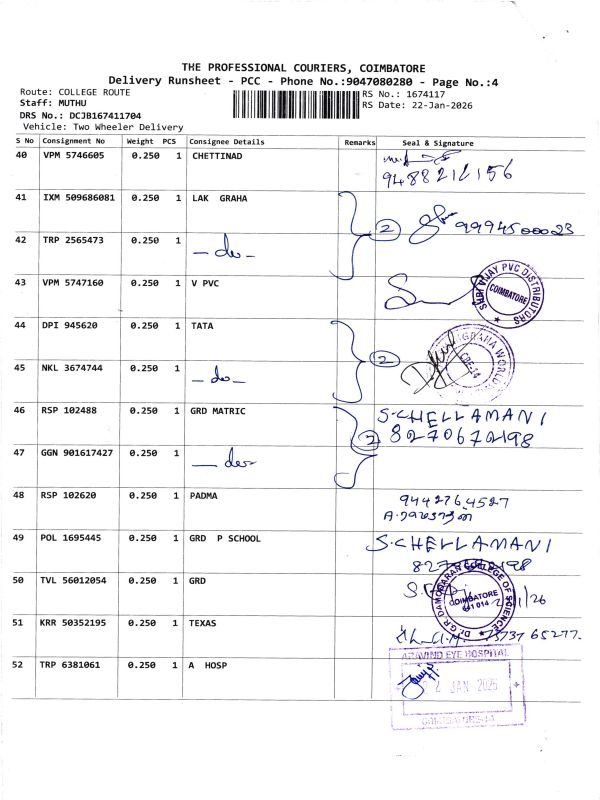 THE PROFESSIONAL COURIERS, COIMBATORE
Delivery Runsheet - PCC - Phone No.:9047080280 - Page No.:4
Route: COLLEGE ROUTE
RS No.: 1674117
Staff: MUTHU
RS Date: 22-Jan-2026
DRS No.: DCJB167411704
Vehicle: Two Wheeler Delivery
S No Consignment No Weight PCS Consignee Details Remarks Seal & Signature
40 VPM 5746605 0.250 1 CHETTINAD
9488212156
41 IXM 509686081 0.250 1 LAK GRAHA
2 9994500023
42 TRP 2565473 0.250 1 — do —
43 VPM 5747160 0.250 1 V PVC
SHRI VIJAY PVC DISTRIBUTORS
COIMBATORE
44 DPI 945620 0.250 1 TATA
2
45 NKL 3674744 0.250 1 — do —
46 RSP 102488 0.250 1 GRD MATRIC S.CHELLAMANI
2 8270672198
47 GGN 901617427 0.250 1 — do —
48 RSP 102620 0.250 1 PADMA 9442764527
49 POL 1695445 0.250 1 GRD P SCHOOL S.CHELLAMANI
50 TVL 56012054 0.250 1 GRD
Dr. G.R. DAMODARAN COLLEGE OF SCIENCE
COIMBATORE
641 014
51 KRR 50352195 0.250 1 TEXAS 73737 65277
52 TRP 6381061 0.250 1 A HOSP
ARAVIND EYE HOSPITAL
2 JAN 2025
COIMBATORE-14